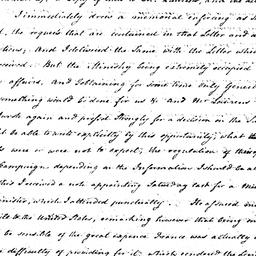 I immediately drew a memorial inforcing as
the requests that are contained in that Letter and
And I delivered the Same with the Letter which
But the Ministry being extremely occupied
affairs, And Obtaining for some time only General
something would be done for us & And Mr Laurens
again and pressed Strongly for a decision on the
to be able to write explicitly by this opportunity, what the
were or were not to expect, the regulation of their
Campaign depending on the Information I should be
I received a note appointing Saturday last for a
minister, which I attended punctually. He assured me
to the United States, remarking however that being
to be sensible of the great expence France was actually
difficulty of providing for it, which rendered the